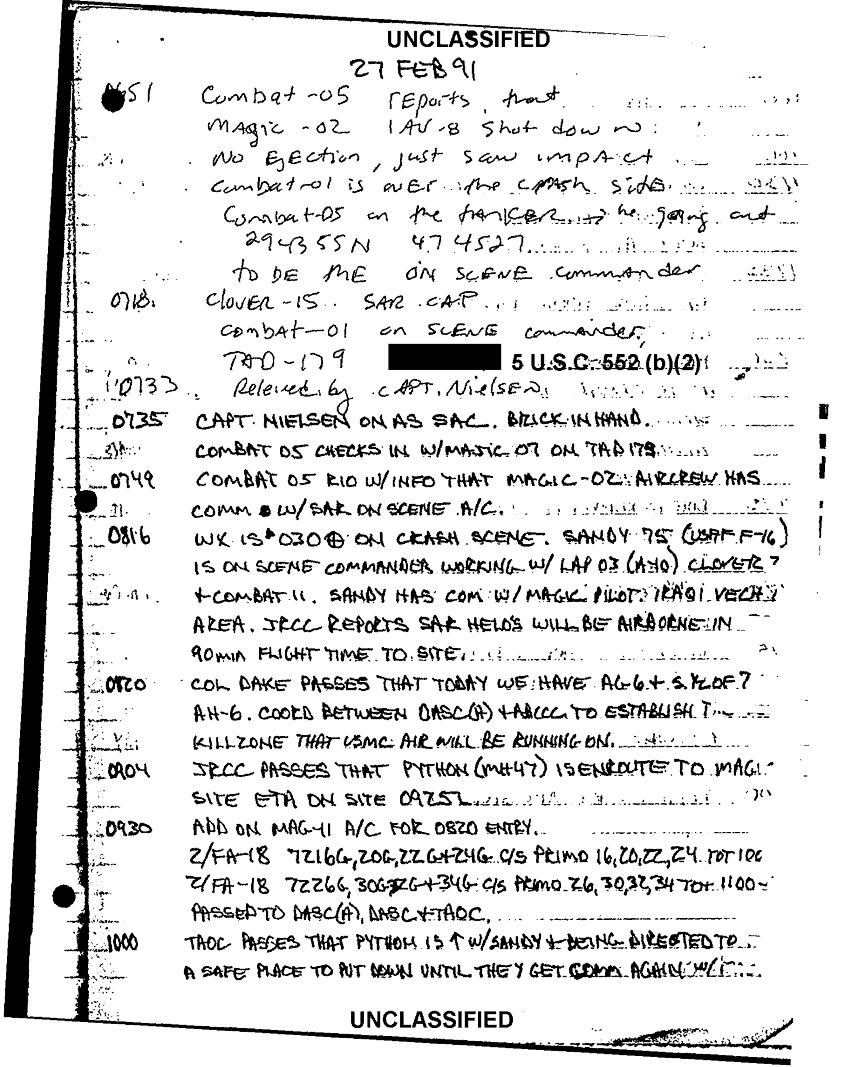 UNCLASSIFIED
27 FEB 91
0651 Combat-05 reports that
MAgic-02 1 AV-8 Shot down
No EjEction, just saw impAct
Combat-01 is over the CRASH side
Combat-05 on the tANKER he going out
294355N 474527
to BE thE ON SCENE commander
0718 CloVER-15 SAR CAP
Combat-01 on SCENE commander,
TAD-179 5 U.S.C. 552 (b)(2)
0733 Releived by CAPT. NielsEN
0735 CAPT. NIELSEN ON AS SAC. BRICK IN HAND.
COMBAT 05 CHECKS IN W/MAJIC 07 ON TAD 179
0749 COMBAT 05 RIO W/INFO THAT MAGIC-02 AIRCREW HAS
COMM W/SAR ON SCENE A/C.
0816 WX IS 030⊕ ON CRASH SCENE. SANDY 75 (USAF F-16)
IS ON SCENE COMMANDER WORKING W/ LAP 03 (A-10) CLOVER
+ COMBAT 11. SANDY HAS COM W/ MAGIC PILOT. IRAQI VECH
AREA. JRCC REPORTS SAR HELO'S WILL BE AIRBORNE IN
90 MIN FLIGHT TIME TO SITE.
0820 COL DAKE PASSES THAT TODAY WE HAVE AG-6 + 5 OF
AH-6. COORD BETWEEN DASC(A) + ABCCC TO ESTABLISH
KILLZONE THAT USMC AIR WILL BE RUNNING ON.
0904 JRCC PASSES THAT PYTHON (MH47) IS ENROUTE TO MAGI
SITE ETA ON SITE 0925Z
0930 ADD ON MAG-11 A/C FOR 0820 ENTRY.
2/FA-18 7216G, 20G, 22G + 24G C/S PRIMO 16, 20, 22, 24 TOT
2/FA-18 7226G, 30G, 32G + 34G C/S PRIMO 26, 30, 32, 34 TOT 1100
PASSED TO DASC(A), DASC + TAOC.
1000 TAOC PASSES THAT PYTHON IS ↑ W/SANDY + BEING DIRECTED TO
A SAFE PLACE TO PUT DOWN UNTIL THEY GET COMM AGAIN W/
UNCLASSIFIED